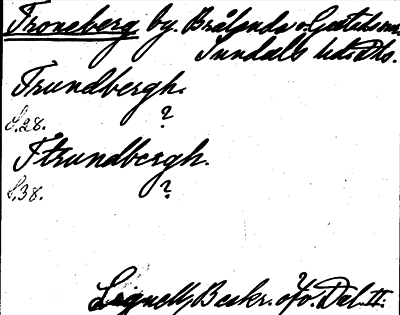 Troneberg by. Brålanda o. Gestads sn.
Sundals hd. Dls.
Trundbergh.
S. 28. ?
Ftrundbergh.
S. 38. ?
Lignell, Beskr. öfv. Dal. II.